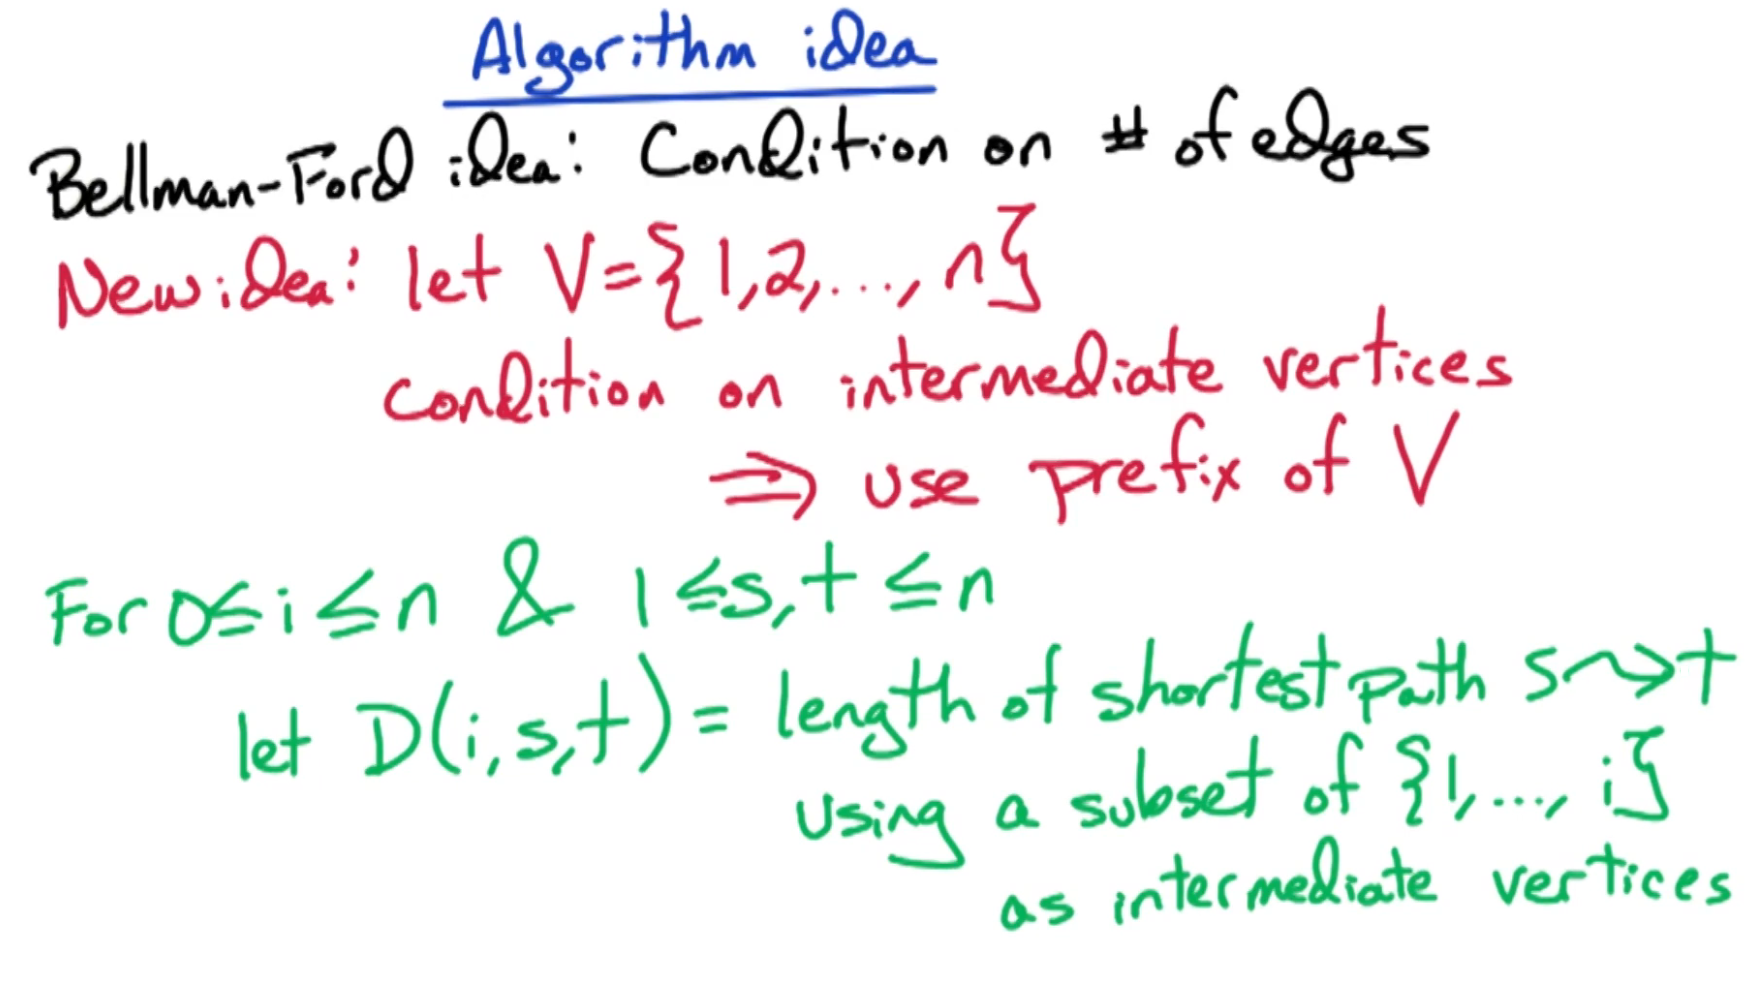 Algorithm idea
Bellman-Ford idea: Condition on # of edges
New idea: let V={1,2,...,n}
condition on intermediate vertices
⇒ use prefix of V
For 0≤i≤n & 1≤s,t≤n
let D(i,s,t)= length of shortest path s⤳t
using a subset of {1,...,i}
as intermediate vertices